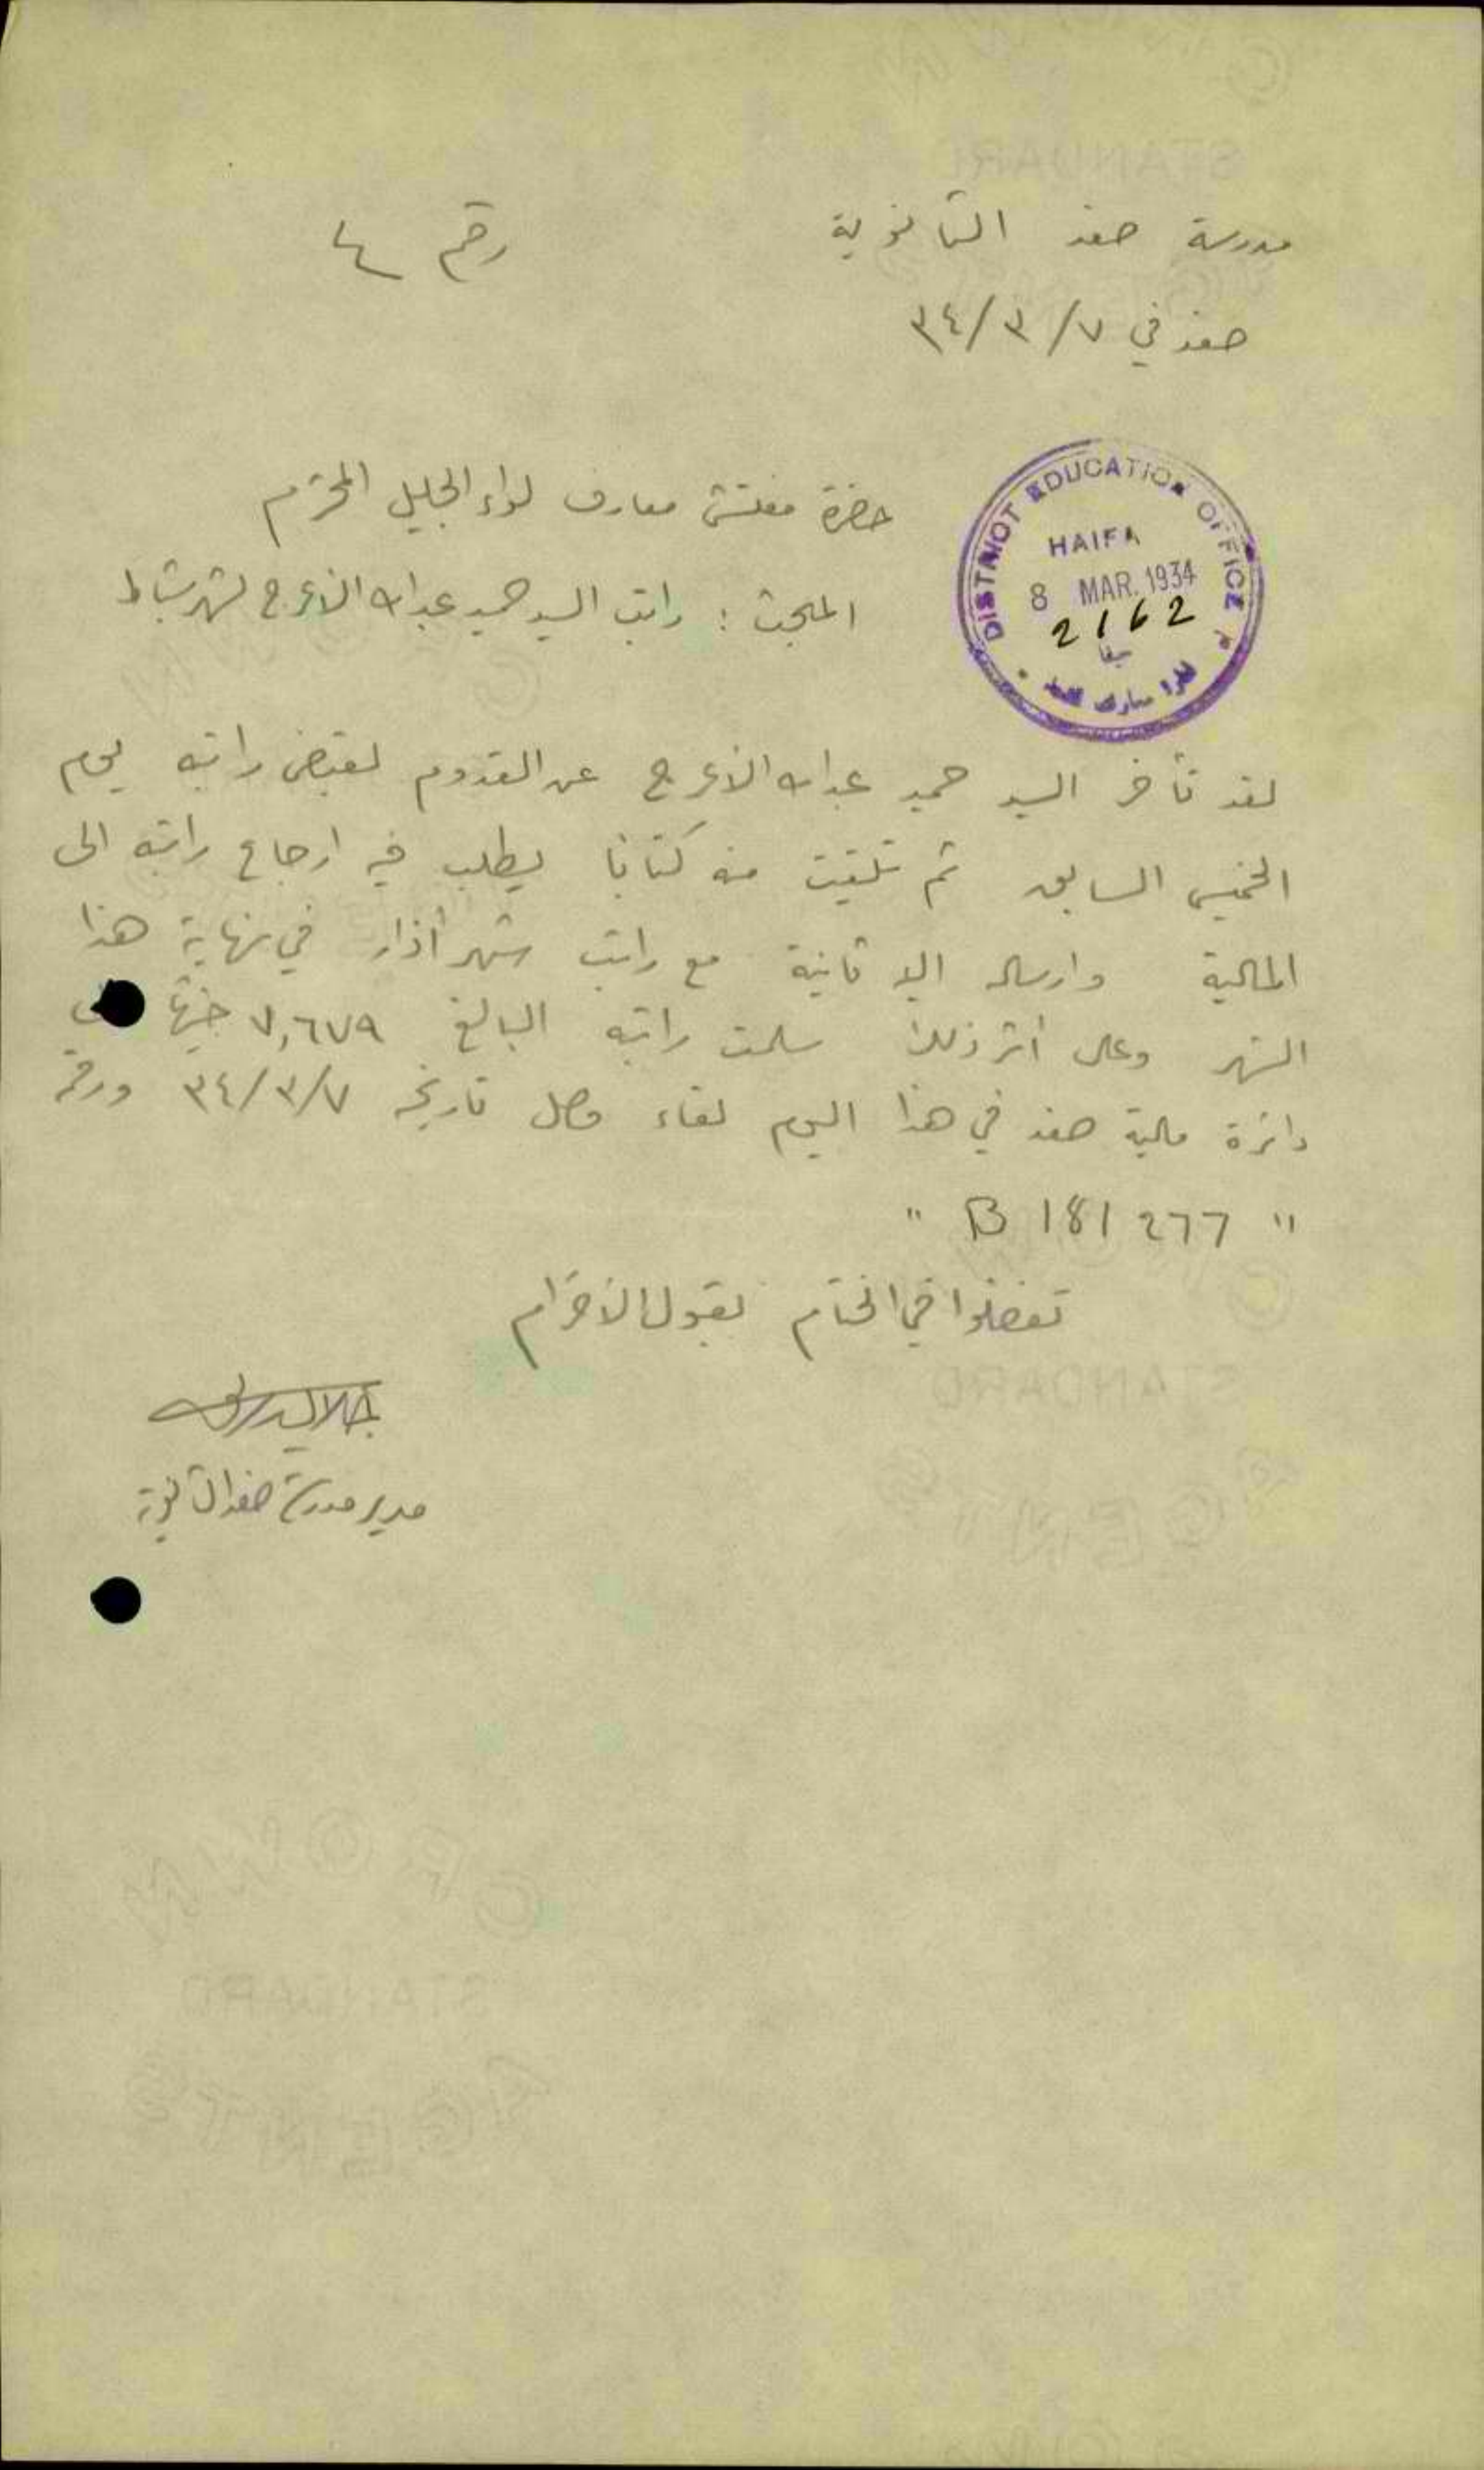 مدرسة صفد الثانوية رقم ٤
صفد في ٧/٣/٣٤
DISTRICT EDUCATION OFFICE
HAIFA
8 MAR. 1934
2162
حيفا
حضرة مفتش معارف لواء الجليل المحترم
المبحث : راتب السيد حميد عبدالله الأعرج لشهر شباط
لقد تأخر السيد حميد عبدالله الأعرج عن القدوم لقبض راتبه يوم
الخميس السابق ثم تلقيت منه كتابا يطلب فيه ارجاع راتبه الى
المالية وارساله اليه ثانية مع راتب شهر أذار في نهاية هذا
الشهر وعلى أثر ذلك سلمت راتبه البالغ ٧,٦٧٩ جنيها
دائرة مالية صفد في هذا اليوم لقاء وصل تاريخه ٧/٣/٣٤ ورقمه
" B 181277 "
تفضلوا في الختام بقبول الأحترام
مدير مدرسة صفد الثانوية